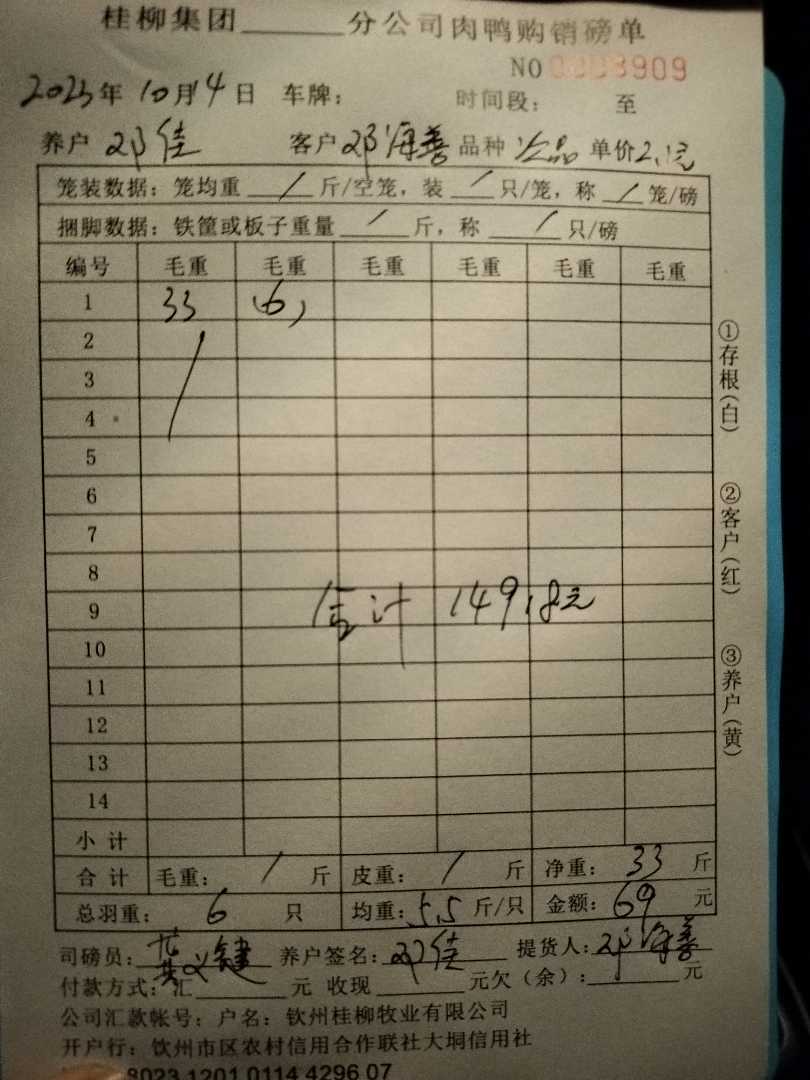 桂柳集团______分公司肉鸭购销磅单
NO 0003909
2023年10月4日 车牌: 时间段: 至
养户 邓佳 客户 邓海善 品种 次品 单价2.1元
笼装数据: 笼均重 / 斤/空笼, 装 / 只/笼, 称 / 笼/磅
捆脚数据: 铁筐或板子重量 / 斤, 称 / 只/磅
编号 毛重 毛重 毛重 毛重 毛重 毛重
1 33 (6)
2
3
4
5
6
7
8
9
合计 1491.8元
10
11
12
13
14
小计
合计 毛重: / 斤 皮重: / 斤 净重: 33 斤
总羽重: 6 只 均重: 5.5 斤/只 金额: 69 元
司磅员: 黄义键 养户签名: 邓佳 提货人: 邓海善
付款方式: 汇______元 收现______元欠(余):______元
公司汇款帐号: 户名: 钦州桂柳牧业有限公司
开户行: 钦州市区农村信用合作联社大垌信用社
8023 1201 0114 4296 07
①存根(白)
②客户(红)
③养户(黄)